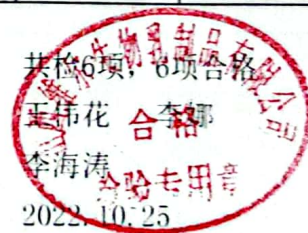 共检6项，6项合格
王伟花 李娜
李海涛
2022.10.25
生物乳制品有限公司
合格
检验专用章